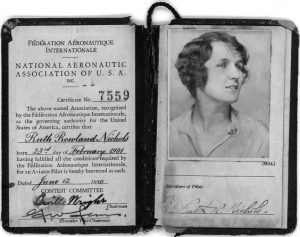 FÉDÉRATION AÉRONAUTIQUE
INTERNATIONALE
NATIONAL AERONAUTIC
ASSOCIATION OF U.S.A.
INC.
Certificate No. 7559
The above named Association, recognized
by the Fédération Aéronautique Internationale,
as the governing authority for the United
States of America, certifies that
Ruth Rowland Nichols
born 23rd day of February 1901
having fulfilled all the conditions required by
the Fédération Aéronautique Internationale,
for an Aviator Pilot is hereby brevetted as such.
Dated June 12,
CONTEST COMMITTEE
Orville Wright
Chairman
Executive Vice-Chairman
(SEAL)
Signature of Pilot
Nichols